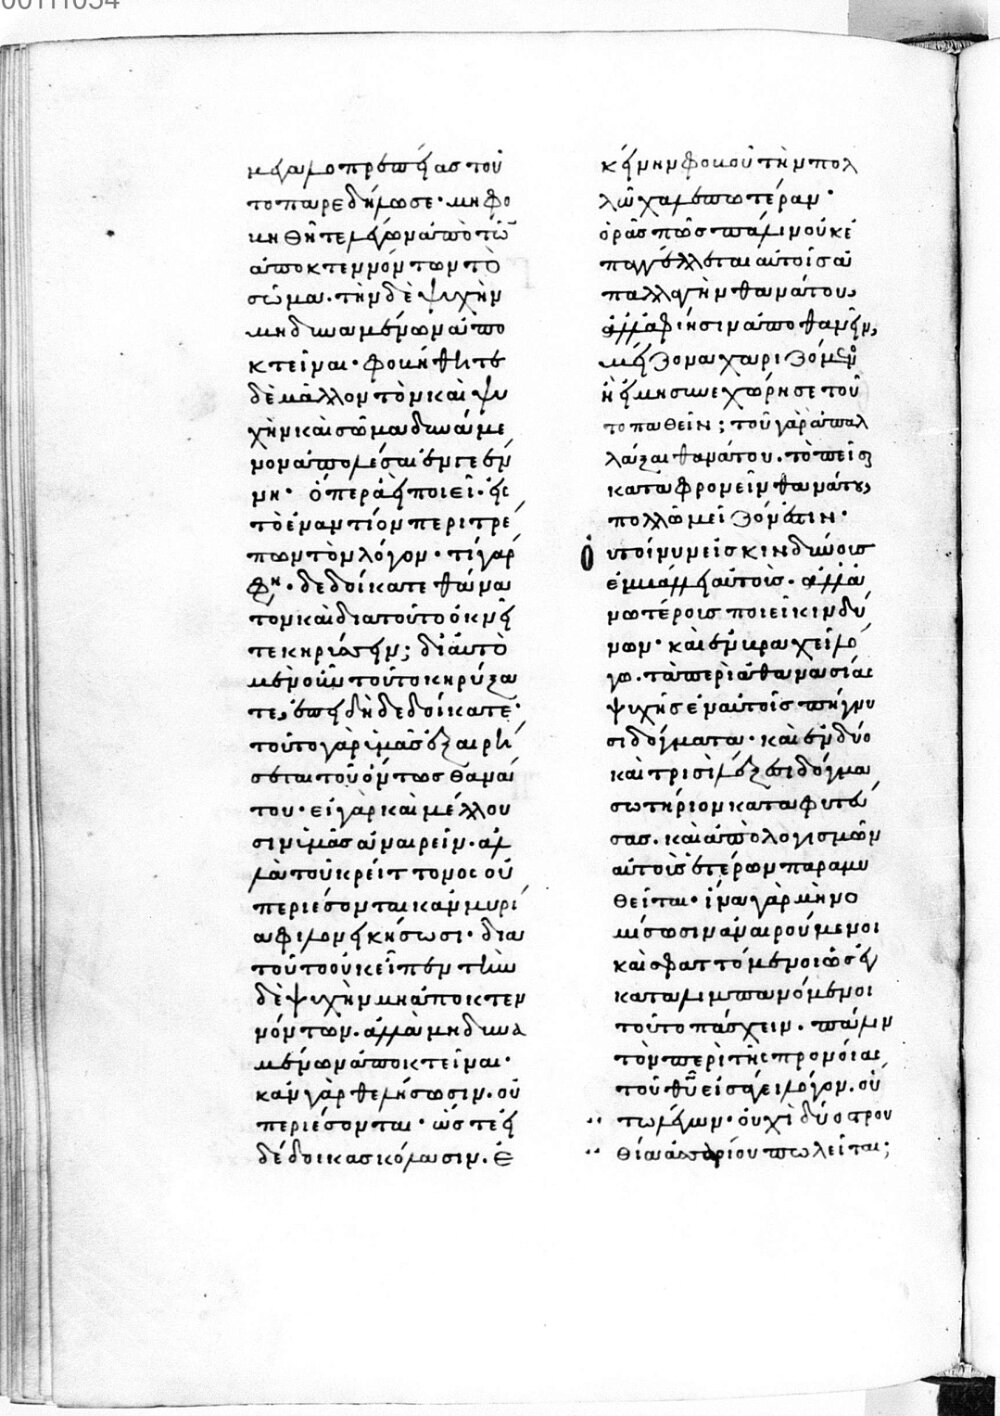 κειμενοπρεπειας τοῦ
το παρεδήλωσε· μὴ φο
βηθῆτε λέγων ἀπὸ τῶν
ἀποκτεννόντων τὸ
σῶμα· τὴν δὲ ψυχὴν
μὴ δυναμένων ἀπο
κτεῖναι· φοβήθητε
δὲ μᾶλλον τὸν καὶ ψυ
χὴν καὶ σῶμα δυνάμε
νον ἀπολέσαι ἐν γεέν
νη· ὅπερ ἀεὶ ποιεῖ· εἰς
τὸ ἐναντίον περιτρέ
πων τὸν λόγον· τί γάρ
φη· δεδοίκατε θάνα
τον καὶ διὰ τοῦτο ὀκνεῖ
τε κηρύττειν; δι' αὐτὸ
μὲν οὖν τοῦτο κηρύξα
τε, ἐπειδὴ δεδοίκατε·
τοῦτο γὰρ ὑμᾶς ἐξαιρή
σεται τοῦ ὄντως θανά
του· εἰ γὰρ καὶ μέλλου
σιν ὑμᾶς ἀναιρεῖν· ἀλ
λὰ τοῦ κρείττονος οὐ
περιέσονται κἂν μυρί
α φιλονεικήσωσι· διὰ
τοῦτο οὐκ εἶπεν τὴν
δὲ ψυχὴν μὴ ἀποκτεν
νόντων· ἀλλὰ μὴ δυνα
μένων ἀποκτεῖναι·
κἂν γὰρ θελήσωσιν· οὐ
περιέσονται· ὥστε εἰ
δέδοικας κόλασιν· ἐ
κείνην φοβοῦ τὴν πολ
λῷ χαλεπωτέραν·
ὁρᾶς πῶς πάλιν οὐκ ἐ
παγγέλλεται αὐτοῖς ἀ
παλλαγὴν θανάτου,
ἀλλ' ἀφίησιν ἀποθανεῖν,
μείζονα χαριζόμενος
ἢ εἰ μὴ συνεχώρησε τοῦ
το παθεῖν; τοῦ γὰρ ἀπαλ
λάξαι θανάτου· τὸ πεῖσαι
καταφρονεῖν θανάτου,
πολλῷ μεῖζόν ἐστιν·
Οὐ τοίνυν εἰς κινδύνους
ἐμβάλλει αὐτοὺς· ἀλλὰ
νωτέρους ποιεῖ κινδύ
νων· καὶ ἐν βραχεῖ λό
γῳ· τὰ περὶ ἀθανασίας
ψυχῆς ἐν αὐτοῖς πήγνυ
σι δόγματα· καὶ ἐν δύο
καὶ τρισὶ λέξεσι δόγμα
σωτήριον καταφυτεύ
σας· καὶ ἀπὸ λογισμῶν
αὐτοὺς ἑτέρων παραμυ
θεῖται· ἵνα γὰρ μὴ νο
μίσωσιν ἀναιρούμενοι
καὶ σφαττόμενοι ὡς ἐγ
καταλιμπανόμενοι
τοῦτο πάσχειν· πάλιν
τὸν περὶ τῆς προνοίας
τοῦ θῦ εἰσάγει λόγον· οὑ
τω λέγων· οὐχὶ δύο στρου
θία ἀσσαρίου πωλεῖται;